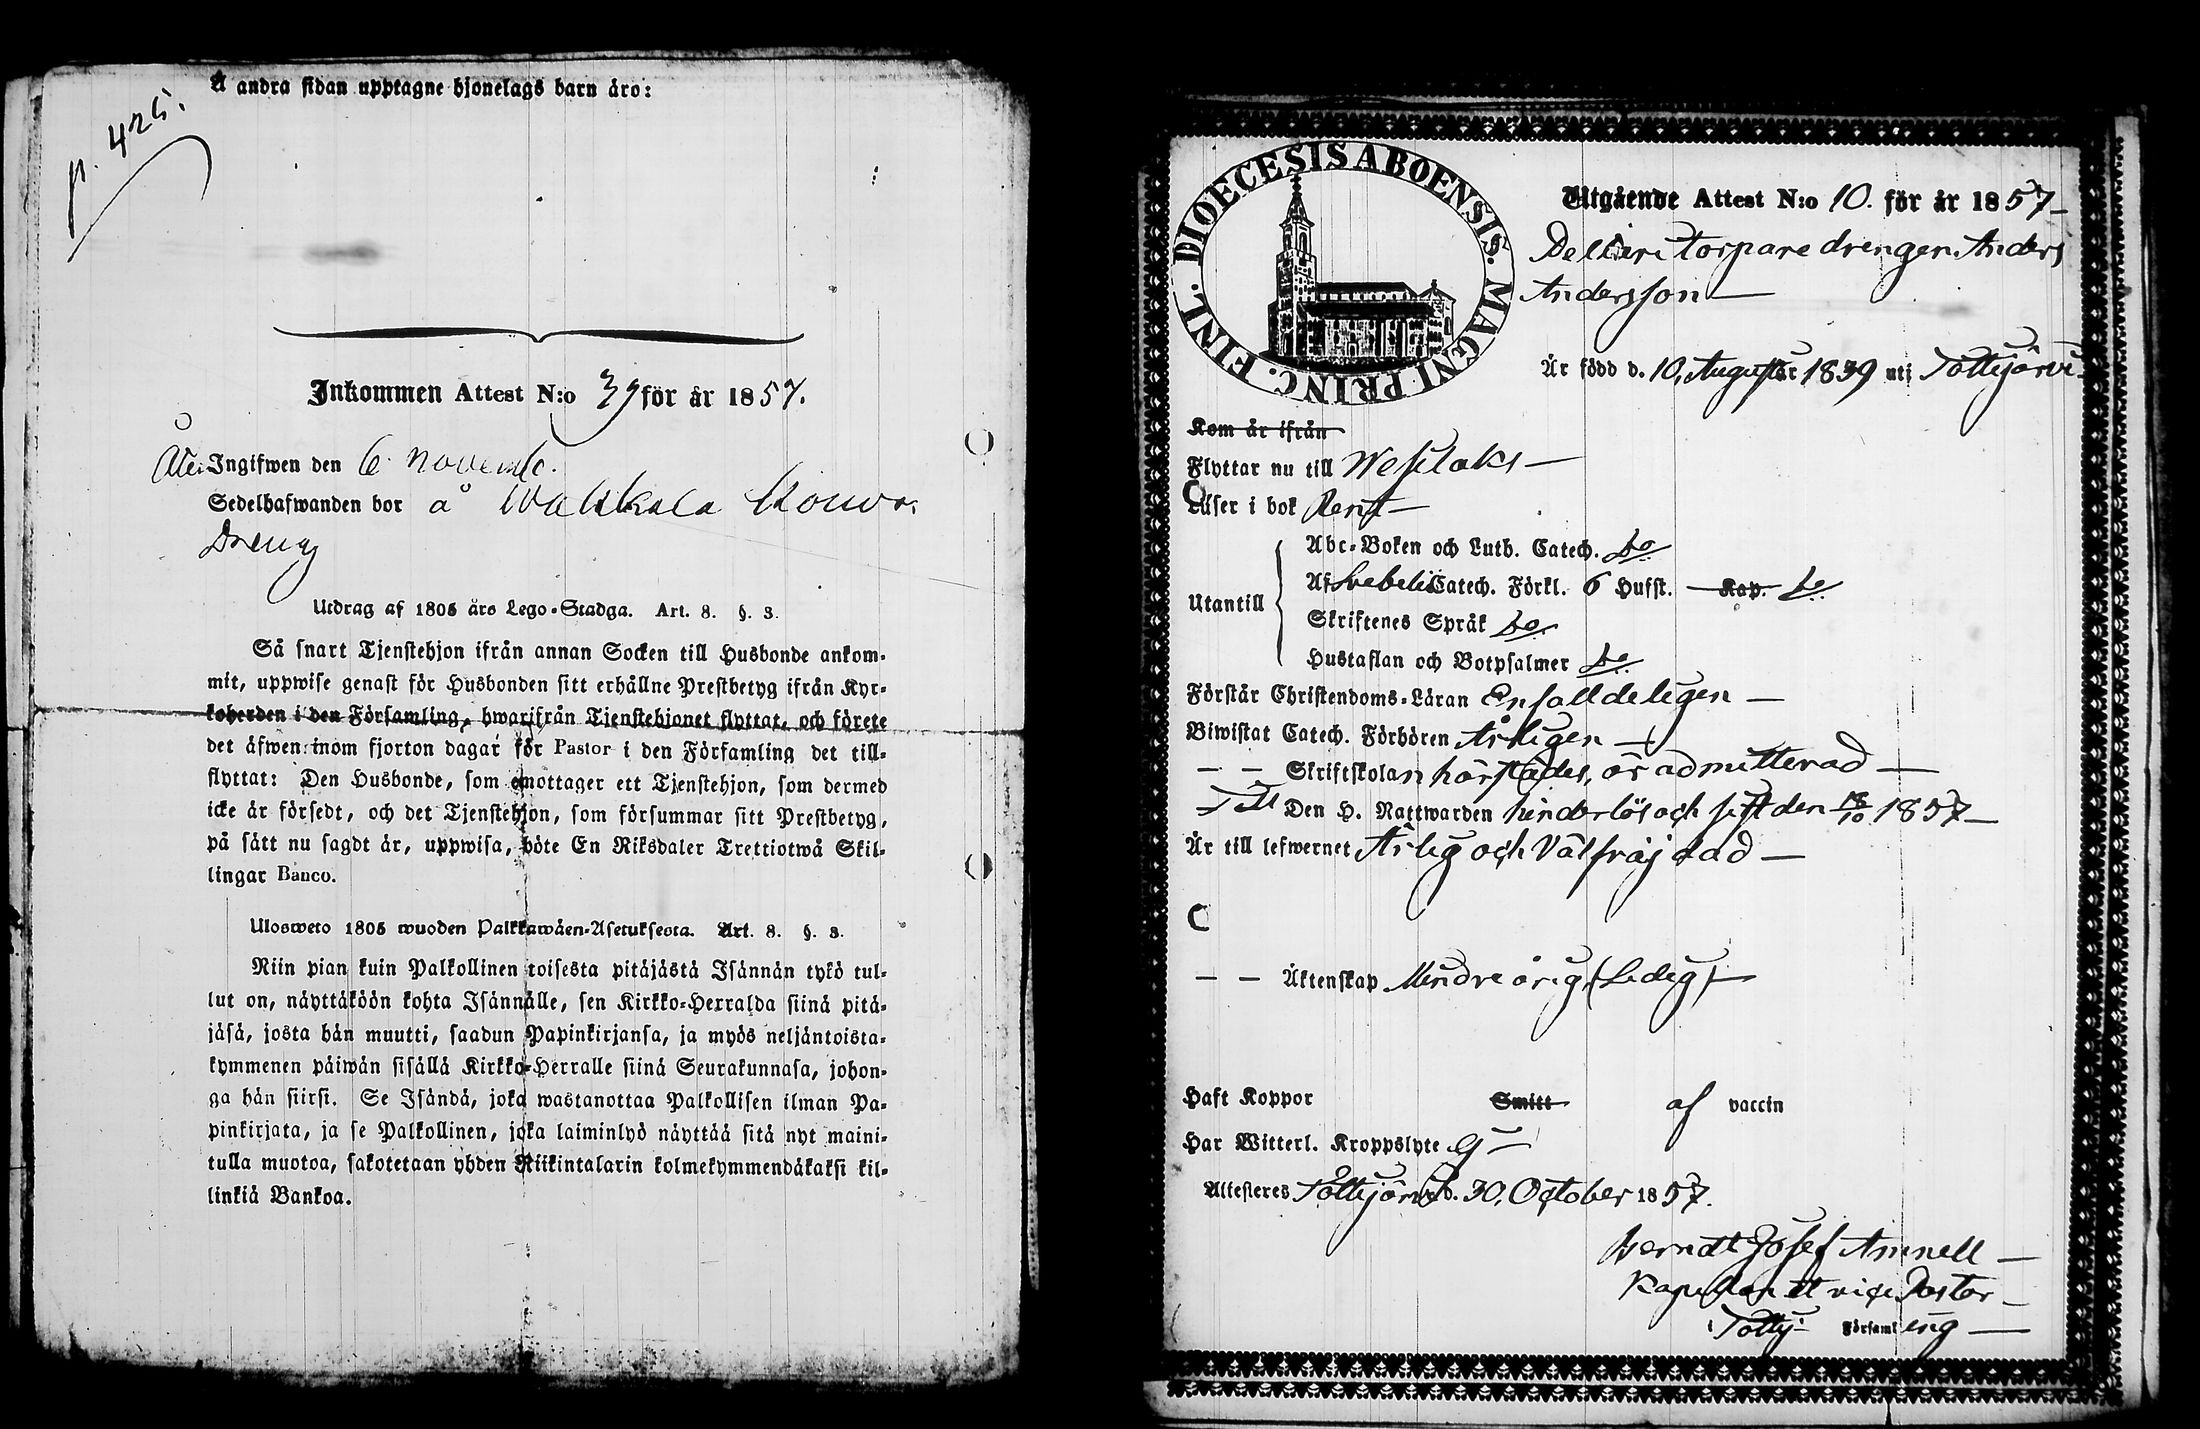 p. 425.
Å andra sidan upptagne hjonelags barn äro:
Inkommen Attest N:o 39 för år 1857.
Ingifwen den 6 novemb.
Sedelhafwanden bor å Wahkala
Dreng
Utdrag af 1805 års Lego-Stadga. Art. 8. §. 3.
Så snart Tjenstehjon ifrån annan Socken till Husbonde ankom-
mit, uppwise genast för Husbonden sitt erhållne Prestbetyg ifrån Kyr-
koherden i den Församling, hwarifrån Tjenstehjonet flyttat, och förete
det äfwen inom fjorton dagar för Pastor i den Församling det till-
flyttat: Den Husbonde, som emottager ett Tjenstehjon, som dermed
icke är försedt, och det Tjenstehjon, som försummar sitt Prestbetyg,
på sätt nu sagdt är, uppwisa, böte En Riksdaler Trettiotwå Skil-
lingar Banco.
Ulosweto 1805 wuoden Palkkawäen-Asetuksesta. Art. 8. §. 3.
Niin pian kuin Palkollinen toisesta pitäjästä Isännän tykö tul-
lut on, näyttäköön kohta Isännälle, sen Kirkko-Herralda siinä pitä-
jäsä, josta hän muutti, saadun Papinkirjansa, ja myös neljäntoista-
kymmenen päiwän sisällä Kirkko-Herralle siinä Seurakunnasa, johon-
ga hän siirsi. Se Isändä, joka wastanottaa Palkollisen ilman Pa-
pinkirjata, ja se Palkollinen, joka laiminlyö näyttää sitä nyt maini-
tulla muotoa, sakotetaan yhden Riikintalarin kolmekymmendäkaksi kil-
linkiä Bankoa.
DIOECESIS ABOENSIS. MAGNI PRINC. FINL.
Utgående Attest N:o 10. för år 1857
torpare drengen Anders
Andersson
Är född d. 10, Augusti 1839 uti Tottijärvi
Kom år ifrån
Flyttar nu till Wesilaks
Läser i bok Rent
Utantill
Abc-Boken och Luth. Catech. do
Af Svebelii Catech. Förkl. 6 Hufst. Kap. do
Skriftenes Språk do.
Hustaflan och Botpsalmer do
Förstår Christendoms-Läran Enfalldeligen
Biwistat Catech. Förhören Årligen
Skriftskolan härstädes, är admitterad
Till Den H. Nattwarden hinderlös och sist den 18/10 1857
Är till lefwernet Ärlig och Välfräjdad
Äktenskap Mindreårig (Ledig)
Haft Koppor Smitt af vaccin
Har Witterl. Kroppslyte Ej
Attesteres Tottijärvi d. 30, October 1857.
Berndt Josef Amnell
Kapellan et vice Pastor
i Tottij Församl ing